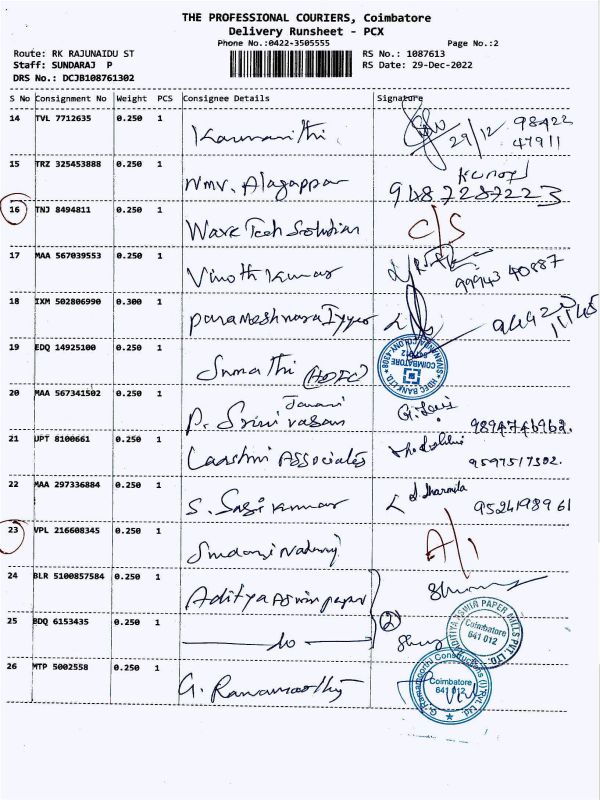 THE PROFESSIONAL COURIERS, Coimbatore
Delivery Runsheet - PCX
Phone No.:0422-3505555 Page No.:2
Route: RK RAJUNAIDU ST RS No.: 1087613
Staff: SUNDARAJ P RS Date: 29-Dec-2022
DRS No.: DCJB108761302
S No Consignment No Weight PCS Consignee Details Signature
14 TVL 7712635 0.250 1 29/12 98422
47911
15 TRZ 325453888 0.250 1 Nmv. Alagappan 9487287223
16 TNJ 8494811 0.250 1 Wave Tech Solution C/S
17 MAA 567039553 0.250 1 Vinoth Kumar 99943 40887
18 IXM 502806990 0.300 1 Parameshwara Iyyer
19 EDQ 14925100 0.250 1 Sumathi (HDFC) HDFC BANK LTD. COIMBATORE
20 MAA 567341502 0.250 1 P. Srinivasan
21 UPT 8100661 0.250 1 Laashmi Associates 9597517302.
22 MAA 297336884 0.250 1 S. Sasikumar Sharmila 9524198961
23 VPL 216608345 0.250 1 A/
24 BLR 5100857584 0.250 1 Aditya Aswin paper
25 BDQ 6153435 0.250 1 do (2) ADITYA ASWIN PAPER MILLS PVT. LTD. Coimbatore 641 012
26 MTP 5002558 0.250 1 G. Ramamoorthy G. Ramamoorthi Constructions (I) Pvt. Ltd. Coimbatore 641 012